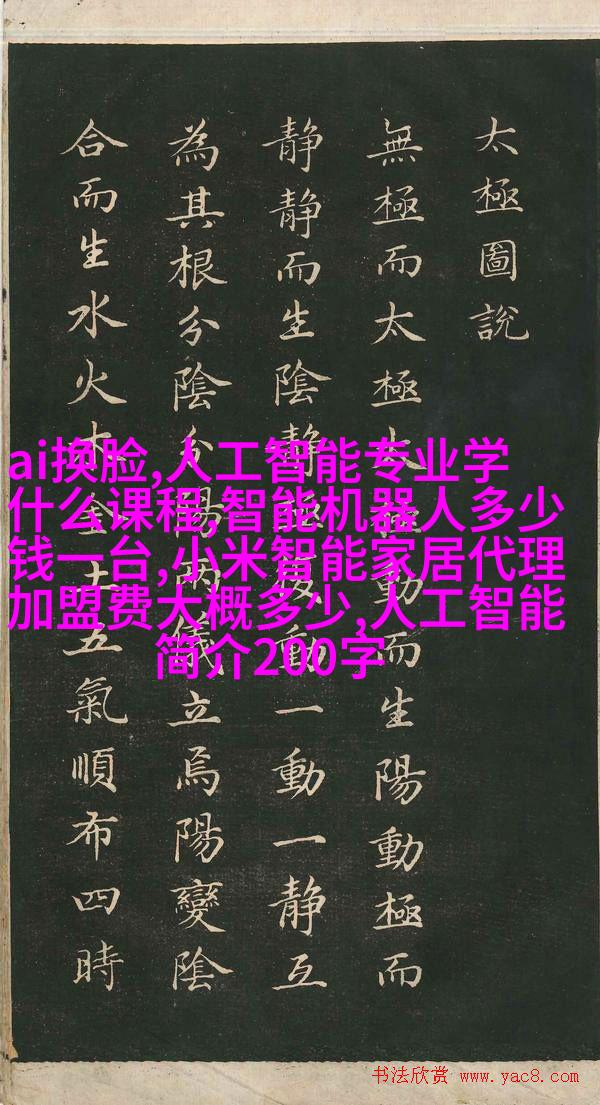 太極圖說
無極而太極太極動而生陽動極而
静静而生陰静極復動一動一静互
為其根分陰分陽兩儀立焉陽變陰
合而生水火木金土五氣順布四時
ai换脸,人工智能专业学
什么课程,智能机器人多少
钱一台,小米智能家居代理
加盟费大概多少,人工智能
简介200字
书法欣赏 www.yac8.com